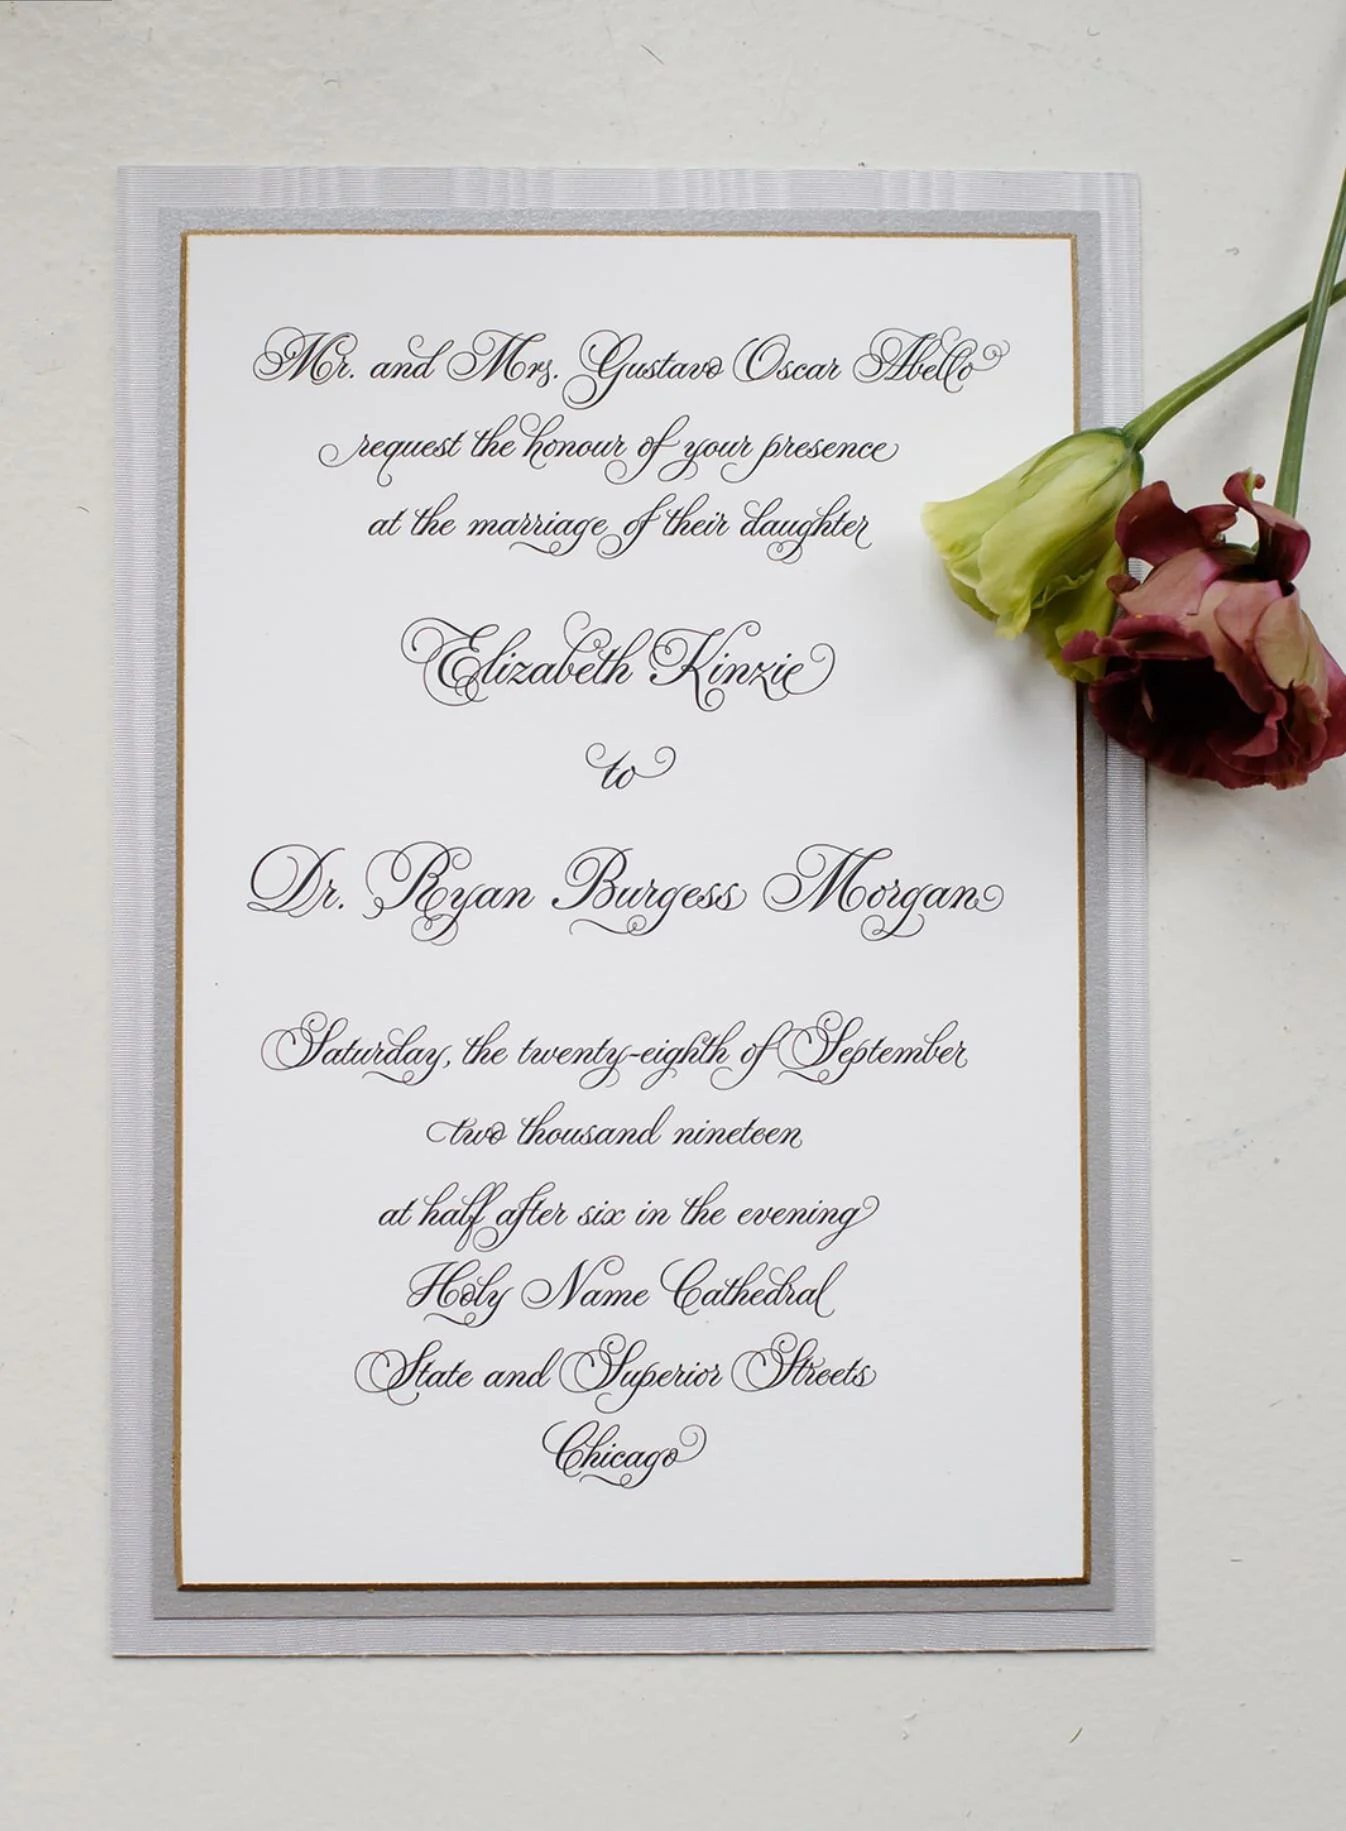 Mr. and Mrs. Gustavo Oscar Abello
request the honour of your presence
at the marriage of their daughter
Elizabeth Kinzie
to
Dr. Ryan Burgess Morgan
Saturday, the twenty-eighth of September
two thousand nineteen
at half after six in the evening
Holy Name Cathedral
State and Superior Streets
Chicago